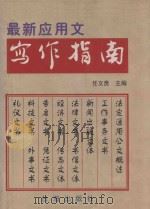 最新应用文
写作指南
任文贵 主编
法定通用公文概述
工作事务文书
新闻出版文体
法律文书
经济文书 传志文体
告启文书 凭证文书
科技文书 外事文书
礼仪文书